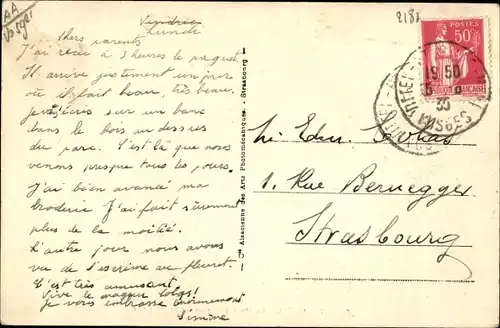 AA
Vosges
2182
Vendredi
Lundi
Chers parents
J'ai reçu à 3 heures le paquet.
Il arrive justement un jour
où il fait beau, très beau.
Je vous écris sur un banc
dans le bois au dessus
du parc. C'est là que nous
venons presque tous les jours.
J'ai bien avancé ma
broderie J'ai fait sûrement
plus de la moitié.
L'autre jour nous avons
vu de l'escrime au fleuret.
C'est très amusant
Vive le
je vous embrasse
Simone
Cie Alsacienne des Arts Photomécaniques. - Strasbourg
POSTES
50c
REPUBLIQUE FRANÇAISE
VITTEL
19 50
35
VOSGES
Mr Edm.
1, Rue Bernegger
Strasbourg